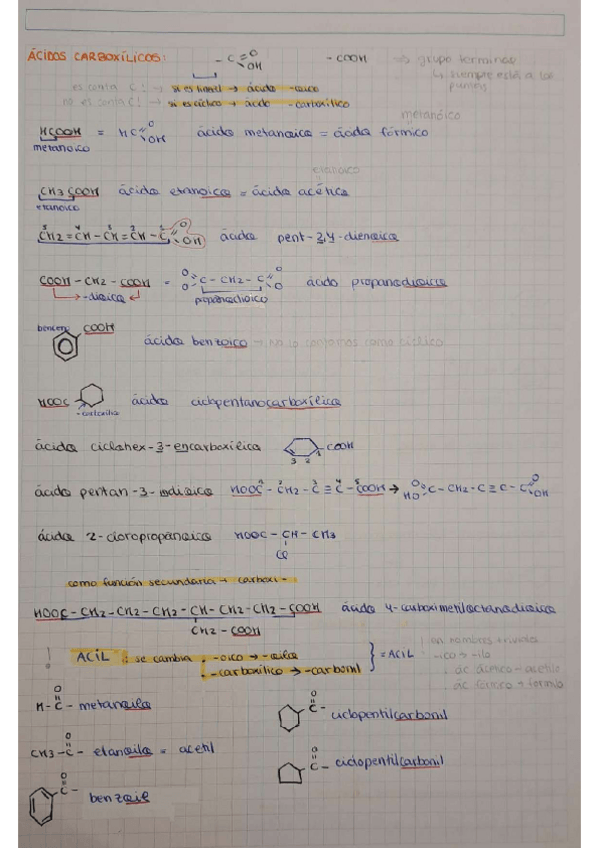 ÁCIDOS CARBOXÍLICOS: -C=O OH -COOH → grupo terminal
↳ siempre está a los puntos
es conta C! → si es lineal → ácido -oico
no es conta C! → si es cíclico → ácido -carboxílico
metanoico
HCOOH = HC=O OH ácido metanoico = ácido fórmico
metanoico
etanoico
CH3COOH ácido etanoico = ácido acético
etanoico
5 4 3 2 1
CH2=CH-CH=CH-C=O OH ácido pent-2,4-dienoico
COOH-CH2-COOH = O O C-CH2-C O O ácido propanodioico
→ -dioico ← propanodioico
benceno COOH
ácido benzoico → no lo contamos como cíclico
HOOC ácido ciclopentanocarboxílico
-carboxílico
ácido ciclohex-3-encarboxílico COOH
3 2 1
ácido pentan-3-inodioico HOOC-CH2-C≡C-COOH → O HO C-CH2-C≡C-C=O OH
ácido 2-cloropropanoico HOOC-CH-CH3
Cl
como función secundaria → carboxi-
HOOC-CH2-CH2-CH2-CH-CH2-CH2-COOH ácido 4-carboximetiloctanodioico
CH2-COOH
! ACIL: se cambia -oico → -oilo
-carboxílico → -carbonil = ACIL
en nombres triviales
-ico → -ilo
ác acético → acetilo
ác fórmico → formilo
O
H-C- metanoilo
O
C- ciclopentilcarbonil
O
CH3-C- etanoilo = acetil
O
C- ciclopentilcarbonil
O
C-
benzoil